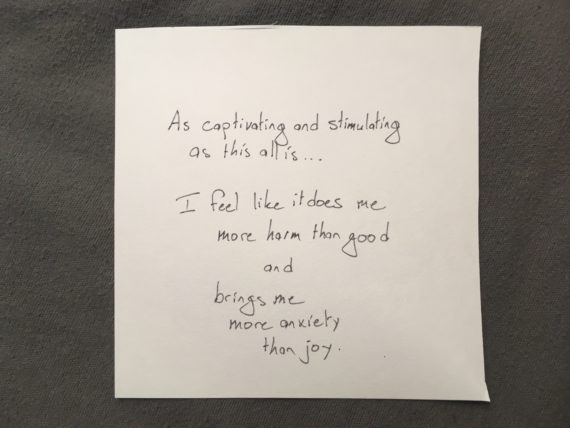 As captivating and stimulating
as this all is...
I feel like it does me
more harm than good
and
brings me
more anxiety
than joy.